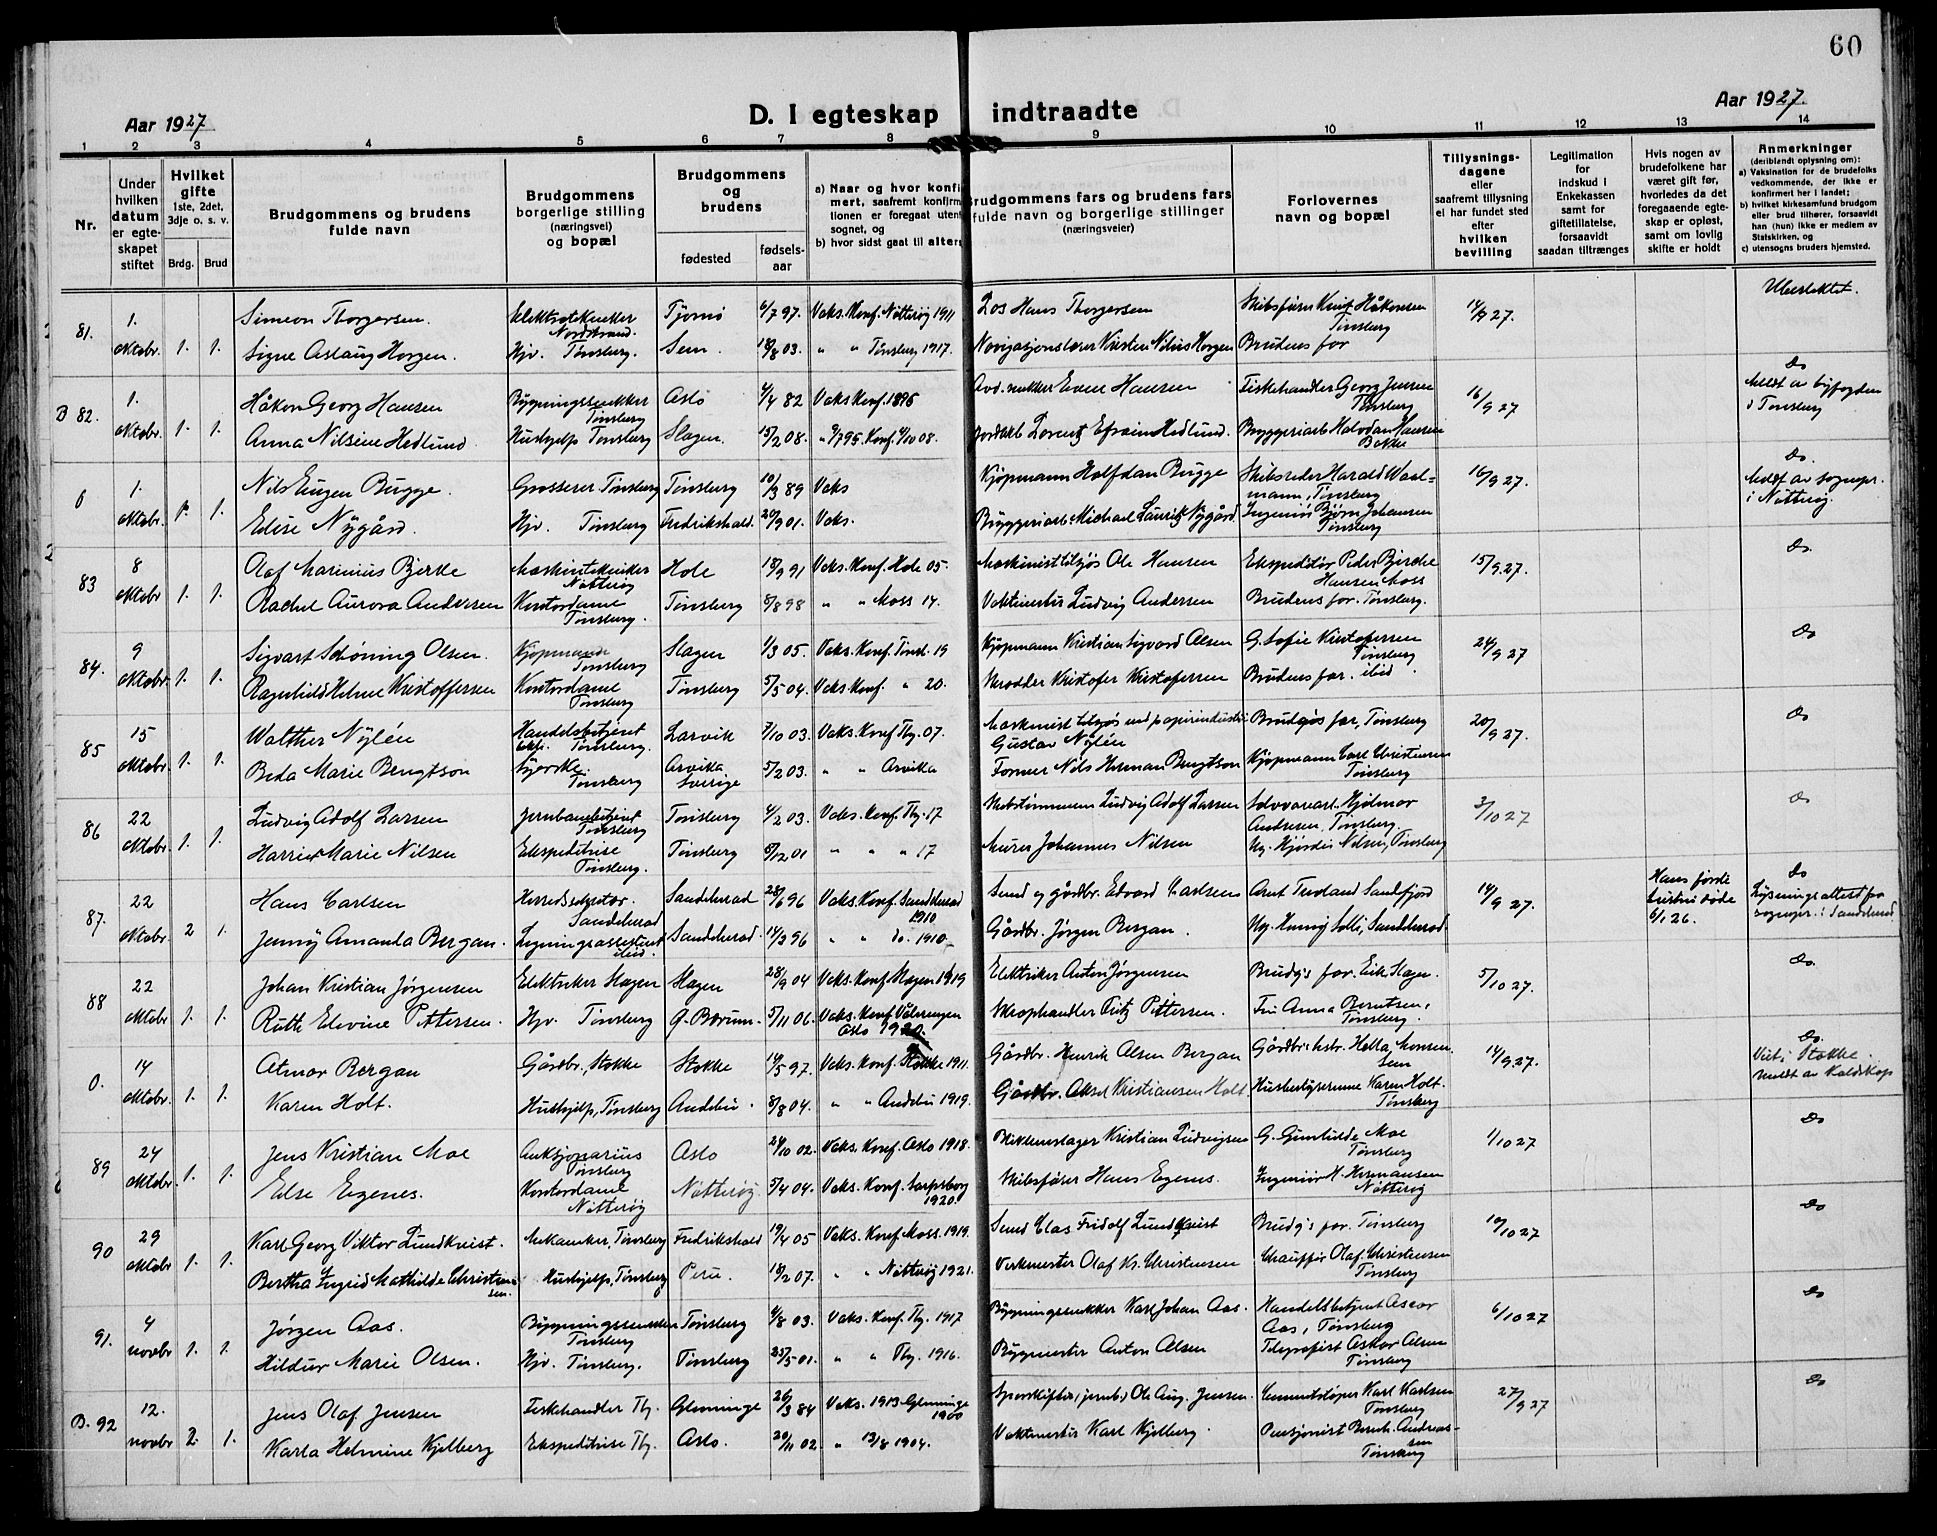 60
Aar 1927
D. I egteskap indtraadte
Aar 1927.
1 2 3 4 5 6 7 8 9 10 11 12 13 14
Nr.
Under hvilken datum er egteskapet stiftet
Hvilket gifte
1ste, 2det, 3dje o. s. v.
Brdg. Brud
Brudgommens og brudens fulde navn
Brudgommens borgerlige stilling (næringsvei) og bopæl
Brudgommens og brudens
fødested
fødsels-aar
a) Naar og hvor konfi
mert, saafremt konfirm
tionen er foregaat uten
sognet, og
b) hvor sidst gaat til alters
Brudgommens fars og brudens fars
fulde navn og borgerlige stillinger
(næringsveier)
Forlovernes
navn og bopæl
Tillysnings-
dagene
eller
saafremt tillysning
ei har fundet sted
efter
hvilken
bevilling
Legitimation
for
indskud i
Enkekassen
samt for
giftetillatelse,
forsaavidt
saadan tiltrænges
Hvis nogen av
brudefolkene har
været gift før,
hvorledes da det
foregaaende egte-
skap er opløst,
samt om lovlig
skifte er holdt
Anmerkninger
(deriblandt oplysning om):
a) Vaksination for de brudefolks
vedkommende, der ikke er
konfirmert her i landet;
b) hvilket kirkesamfund brudgom
eller brud tilhører, forsaavidt
han (hun) ikke er medlem av
Statskirken, og
c) utensogns bruders hjemsted.
81. 1. oktobr. 1. 1.
Simeon Thorgersen. Elektrotekniker Nordstrand. Tjømø 6/7 97. Vaks. Konf. Nøtterøy 1911 Los Hans Thorgersen Skibsfører Knut Håkonsen Tønsberg 14/9 27. Ubeslektet.
Signe Aslaug Horgen. Hjv. Tønsberg. Sem. 18/8 03. " " Tønsberg 1917. Navigasjonslærer Kristen Nilius Horgen Brudens far
B 82. 1. oktobr. 1. 1.
Håkon Georg Hansen Bygningssnekker Tønsberg Oslo 4/4 82 Vaks Konf. 1896 Avd. snekker Even Hansen Fiskehandler Georg Jensen Tønsberg 16/9 27 Do meldt av byfogden i Tønsberg
Anna Nilsine Hedlund. Hushjelp Tønsberg Slagen. 15/2 08. Lorentz Efraim Hedlund. Bryggeriarb. Halvdan Hansen Bekke
0 1. oktobr. 1. 1.
Nils Eugen Bugge. Grosserer. Tønsberg Tønsberg 10/3 89 Vaks Kjøpmann Halfdan Bugge Skibsreder Harald Waal-mann, Tønsberg 16/9 27. Do. meldt av sognepr. i Nøtterøy.
Edise Nygård. Hjv. Tønsberg Fredrikshald. 20/9 01. Vaks. Bryggeriarb. Michael Laurits Nygård Ingeniør Bjørn Johansen Tønsberg
83 8 oktobr 1. 1.
Olaf Marinius Bjerke Maskintekniker Nøtterøy Hole 18/9 91 Vaks. Konf. Hole 05. Maskinist tilsjøs Ole Hansen Ekspeditør Peder Bjerche Hansen Moss 15/9 27. Do.
Rachel Aurora Andersen Kontordame Tønsberg. Tønsberg 8/8 98 " " Moss 14. Vaktmester Ludvig Andersen Brudens far. Tønsberg.
84. 9 oktobr. 1. 1.
Sigvart Schøning Olsen. Kjøpmann Tønsberg Slagen 1/3 05. Vaks. Konf. Tønsb. 19 Kjøpmann Kristian Sigvard Olsen G. Sofie Kristofersen Tønsberg 24/9 27 Do
Ragnhild Helene Kristoffersen Kontordame Tønsberg Tønsberg 5/5 04. Vaks Konf. " 20. Skredder Kristofer Kristofersen Brudens far. ibid.
85 15 oktobr. 1. 1.
Walther Nylén Handelsbetjent Tønsberg. Larvik 7/10 03. Vaks. Konf Tbg. 07. Maskinist tilsjøs ved papirindustri Gustav Nylén Brudgos far, Tønsberg 20/9 27. Do
Beda Marie Bengtson Syerske. Tønsberg Arvika Sverige 5/2 03. " " Arvika Former Nils Herman Bengtson Kjøpmann Carl Christensen Tønsberg
86 22 oktobr. 1. 1.
Ludvig Adolf Larsen Jernbanebetjent Tønsberg Tønsberg 4/2 03. Vaks. Konf. Tbg. 17 Skibstømmerm Ludvig Adolf Larsen Hjalmar Andresen. Tønsberg. 3/10 27 Do
Harriet Marie Nilsen Ekspeditrise Tønsberg. Tønsberg 6/12 01 " " " 17 Murer Johannes Nilsen Ug. Hjørdis Nilsen, Tønsberg
87. 22 oktobr. 2 1.
Hans Carlsen Herredskasserer. Sandeherad Sandeherad 28/6 96 Vaks. Konf. Sandeherad 1910 Smed og gårdbr. Edvard Carlsen Arnt Tveland Sandefjord 14/9 27. Hans første hustru døde 6/1 26. Do Lysningsattest fra sognepr. i Sandeherad
Jenny Amanda Bergan. Ligningsassistent ibid. Sandeherad. 14/3 96 " " do. 1910. Gårdbr. Jørgen Bergan. Ug. Henny Solli, Sandeherad.
88 22 oktobr 1. 1.
Johan Kristian Jørgensen Elektriker Slagen Slagen 28/9 04 Vaks. Konf. Slagen 1919 Elektriker Anton Jørgensen Brudg's far. Eik Slagen. 5/10 27. Do.
Ruth Elevine Pettersen. Hjv. Tønsberg Ø. Bærum. 5/11 06. Vaks. Konf. Vålerengen Oslo 1920. Skraphandler Fritz Pettersen. Fru Anna Berntsen, Tønsberg.
0. 14 oktobr. 1. 1.
Atmar Bergan Gårdbr., Stokke Stokke 14/5 97. Vaks. Konf. Stokke 1911. Gårdbr. Henrik Olsen Bergan Gårdbr. hstr. Hella Monsen. Sem 14/9 27. Do. Viet i Stokke. meldt av Koldskap
Karen Holt. Hushjelp, Tønsberg Andebu. 8/8 04. " " Andebu 1919. Gårdbr. Aksel Kristiansen Holt. Husbestyrerinne Karen Holt. Tønsberg
89 24 oktobr. 1. 1.
Jens Kristian Moe Auksjonarius Tønsberg Oslo 24/10 02. Vaks. Konf. Oslo 1918. Blikkenslager Kristian Ludvigsen G. Gunhilde Moe Tønsberg 1/10 27 Do
Else Egenes. Kontordame Nøtterøy Nøtterøy 5/4 04. Vaks. Konf. Sarpsborg 1920. Skibsfører Hans Egenes. Ingeniør H. Hermansen Nøtterøy
90 29 oktobr 1. 1.
Karl Georg Viktor Lundkvist. Mekaniker, Tønsberg Fredrikshald 19/4 05 Vaks. Konf. Moss. 1919. Smed Clas Fridolf Lundkvist Brudg's far. Tønsberg 10/10 27 Do
Bertha Ingrid Mathilde Christensen. Hushjelp, Tønsberg Peru. 18/2 07. " " Nøtterøy 1921. Verkmester Olaf Kr. Christensen Chauffør Olaf. Christensen Tønsberg
91. 4 novbr 1. 1.
Jørgen Aas. Bygningssnekker Tønsberg Tønsberg 4/8 03. Vaks. Konf. Tbg. 1917 Bygningssnekker Karl Johan Aas. Handelsbetjent Oscar Aas, Tønsberg 6/10 27 Do
Hildur Marie Olsen. Hjv. Tønsberg. Tønsberg 25/5 01. " " Tbg. 1916. Bygmester Anton Olsen Telegrafist Oskar Olsen Tønsberg
B. 92 12. novbr 2 1.
Jens Olaf Jensen Fiskehandler Tbg. Glemminge 26/3 84 Vaks. 1913 Glemminge 1900 Sporskifter (jernb.) Ole Aug. Jensen. Cementstøper Karl Karlsen Tønsberg 27/9 27 Do
Karla Helmine Kjelberg Ekspeditrise Tbg. Oslo. 20/11 02 " 13/8 1904. Vaktmester Karl Kjelberg. Pensjonist Bernh. Andreas-sen Tønsberg